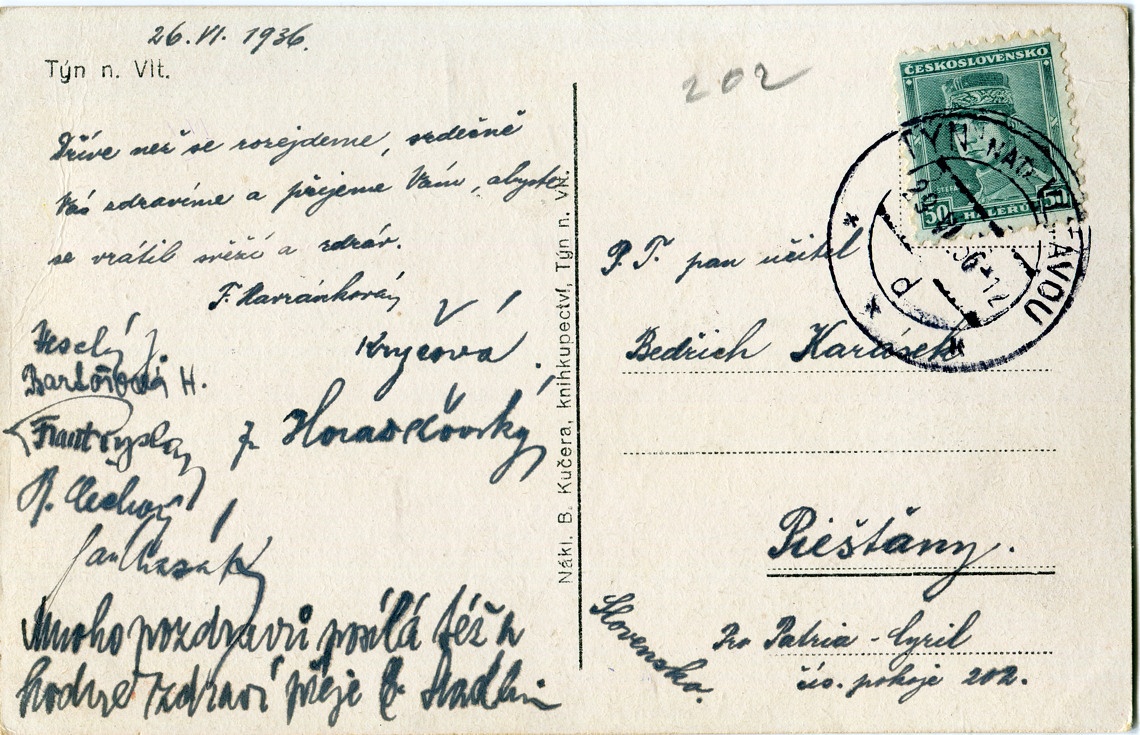 26. VI. 1936.
Týn n. Vlt.
Dříve než se rozejdeme, srdečně
Vás zdravíme a přejeme Vám, abyste
se vrátil svěží a zdráv.
F. Havránková
Veselý J.
Krycová
Bartošová H.
Frant.
Horažďovský
R. Čechová
Jan
Mnoho pozdravů posílá též a
hodně zdraví přeje Stadlin
Nákl. B. Kučera, knihkupectví, Týn n. Vlt.
202
ČESKOSLOVENSKO
50 HALÉŘŮ 50
TÝN NAD VLTAVOU
P. T. pan učitel
Bedřich Karásek
Piešťany.
Slovensko.
Pro Patria - Cyril
čís. pokoje 202.